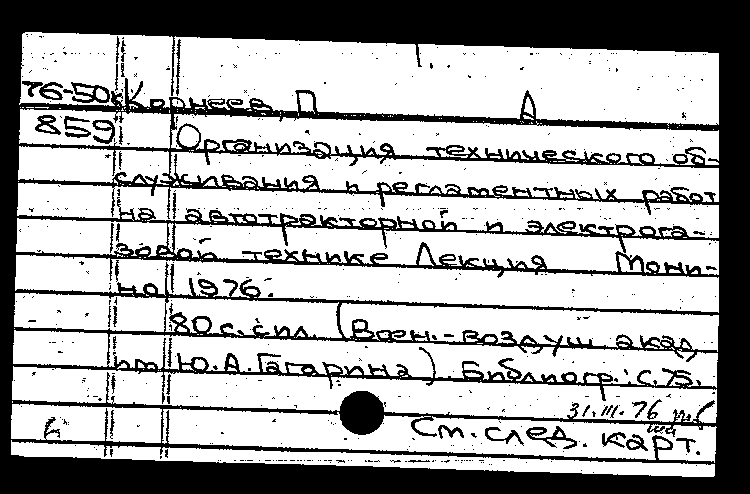 76-50 Корнеев, П А
859 Организация технического об-
служивания и регламентных работ
на автотракторной и электрога-
зовой технике Лекция Мони-
но 1976.
80 с. с ил. (Воен.-воздуш акад,
им Ю.А.Гагарина) Библиогр.: с.75.
31.III.76
См. след. карт.